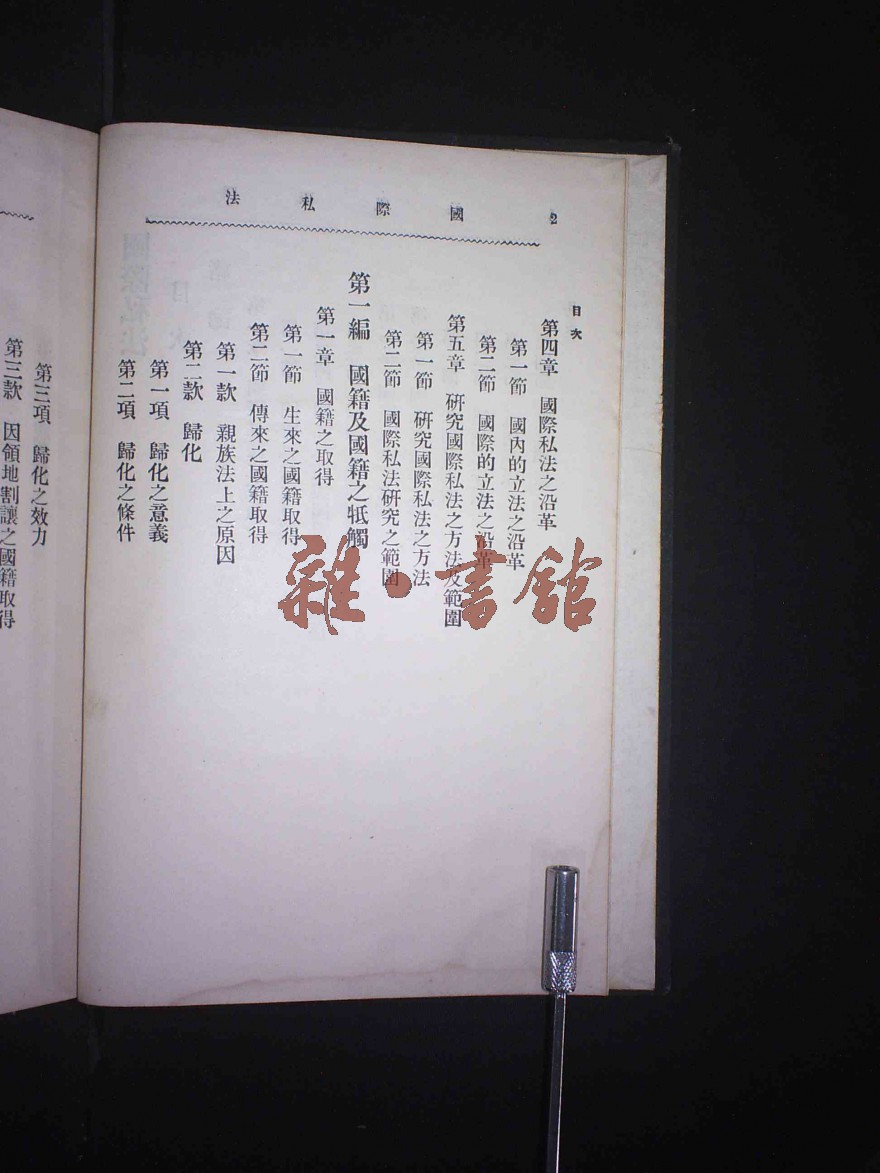 2　國際私法
目次
第四章　國際私法之沿革
第一節　國內的立法之沿革
第二節　國際的立法之沿革
第五章　研究國際私法之方法及範圍
第一節　研究國際私法之方法
第二節　國際私法研究之範圍
第一編　國籍及國籍之牴觸
第一章　國籍之取得
第一節　生來之國籍取得
第二節　傳來之國籍取得
第一款　親族法上之原因
第二款　歸化
第一項　歸化之意義
第二項　歸化之條件
第三項　歸化之效力
第三款　因領地割讓之國籍取得
雜·書館